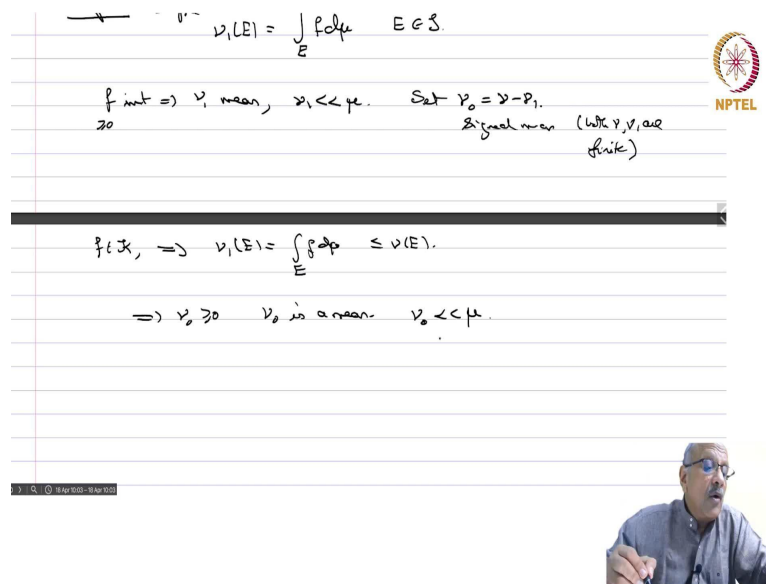 ν₁(E) = ∫_E f dμ E ∈ S.
NPTEL
f int ⇒ ν₁ meas, ν₁ << μ. Set ν₀ = ν - ν₁.
≥0 Signed meas (both ν, ν₁ are
finite)
f ∈ K, ⇒ ν₁(E) = ∫_E f dμ ≤ ν(E).
⇒ ν₀ ≥ 0 ν₀ is a meas. ν₀ << μ.
18 Apr 10:03 - 18 Apr 10:03